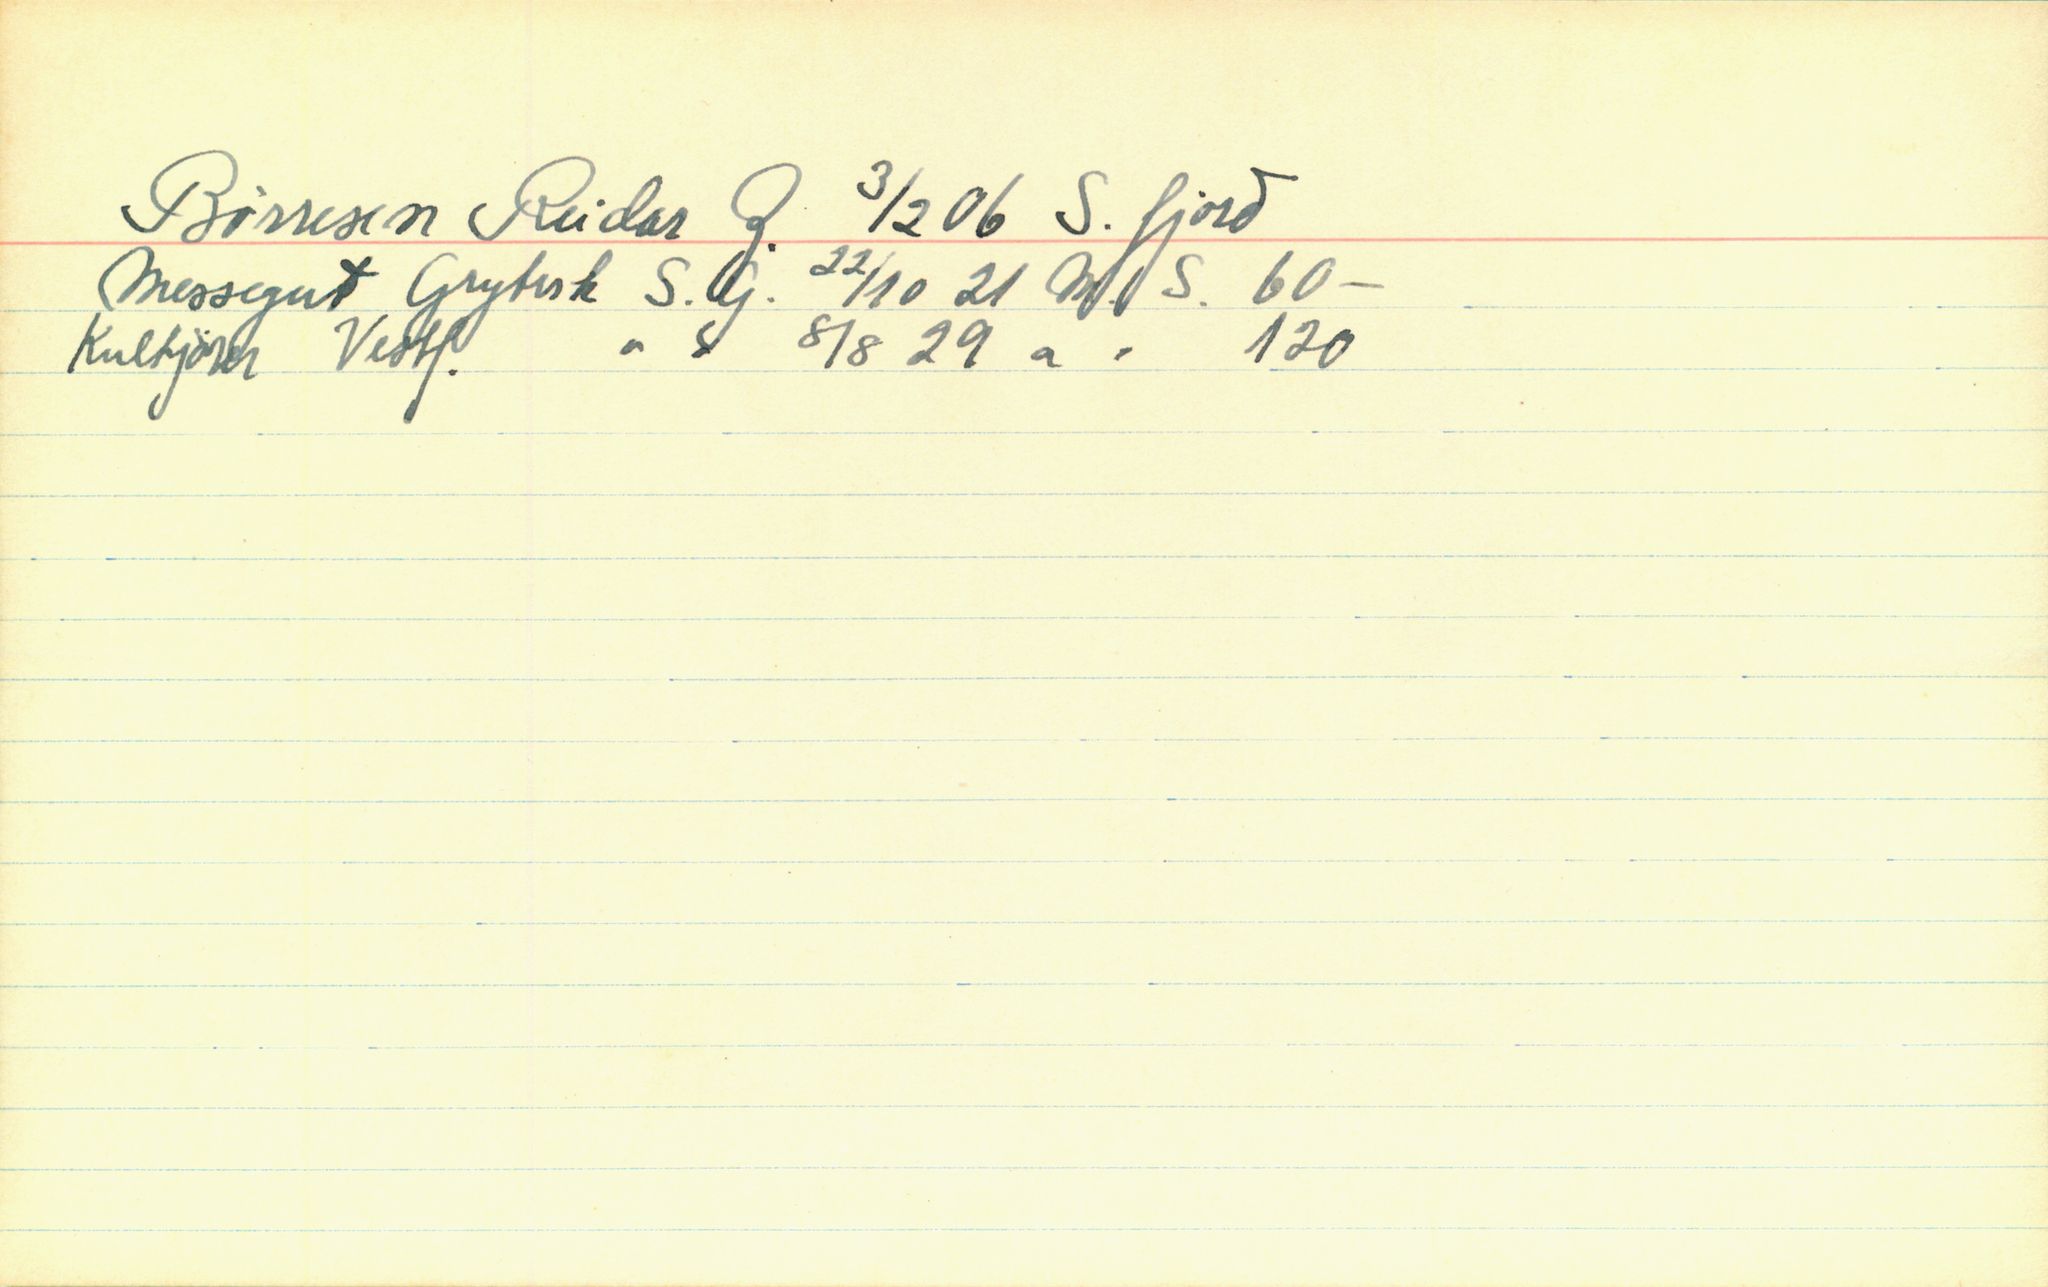 Børresen Reidar J. 3/2 06 S. fjord
Messegut Grytvik S. G. 22/10 21 M. S. 60 –
Kulkjører Vestf. " " 8/8 29 " " 120